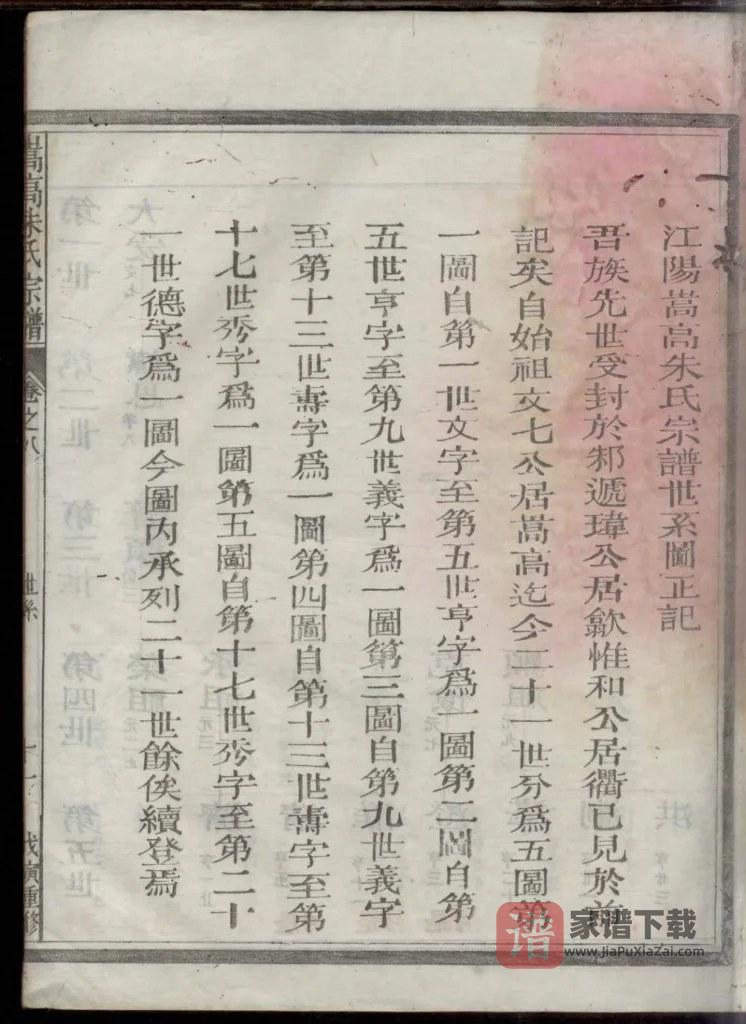 江陽嵩高朱氏宗譜世系圖正記
吾族先世受封於邾遞瑋公居歙惟和公居衢已見於前
記矣自始祖文七公居嵩高迄今二十一世分為五圖第
一圖自第一世文字至第五世亨字為一圖第二圖自第
五世亨字至第九世義字為一圖第三圖自第九世義字
至第十三世壽字為一圖第四圖自第十三世壽字至第
十七世秀字為一圖第五圖自第十七世秀字至第二十
一世德字為一圖今圖內承列二十一世餘俟續登焉
嵩高朱氏宗譜 卷之八 世系 重修
谱 家谱下载
www.JiaPuXiaZai.com